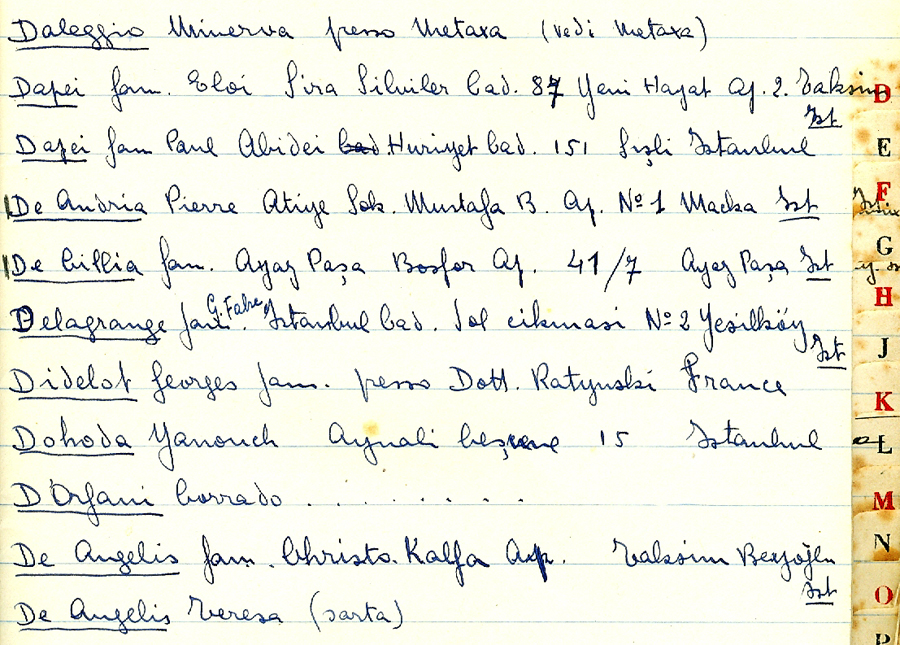 Daleggio Minerva presso Metaxa (vedi Metaxa)
Dapei fam. Eloi Sira Silviler Cad. 87 Yeni Hayat Ap. 2. Taksim
Ist
Dapei fam Paul Abidei Cad. Huriyet Cad. 151 Şişli Istanbul
De Andria Pierre Atiye Sok. Mustafa B. Ap. No 1 Macka Ist
De Cillia fam. Ayaz Paşa Bosfor Ap. 41/7 Ayaz Paşa Ist
Delagrange fam. Istanbul Cad. Sol cikmasi No 2 Yesilköy
Ist
Didelot Georges fam. presso Dott. Ratynski France
Dohoda Yanouch Aynali 15 Istanbul
D'Orfani Corrado . . . . . . . .
De Angelis fam. Christo. Kalfa Ap. Taksim
Ist
De Angelis Teresa (sarta)
D
E
F
G
H
J
K
L
M
N
O
P